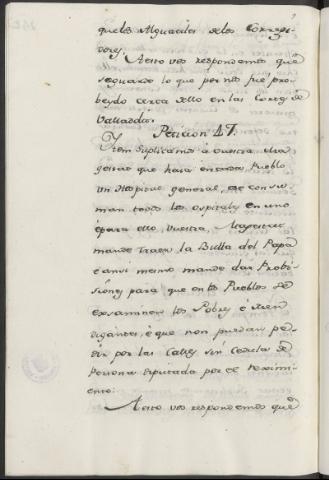 que los Alguaciles de los Corregi-
dores.
A esto vos respondemos que
se guarde lo que por nos fue pro-
beydo cerca dello en las Cortes de
Valladolid.
Peticion 47.
Yten suplicamos a vuestra Ma-
gestad que haia en cada Pueblo
un Hospital general, e se consu-
man todos los ospitales en uno
é para ello, Vuestra Magestad
mande traer la Bulla del Papa
é ansi mesmo mande dar Probi-
siones para que en los Pueblos se
exsaminen los Pobres é men-
digantes, é que non puedan pe-
dir por las Calles sin Cedula de
Persona Diputada por el Reximi-
ento.
A esto vos respondemos que